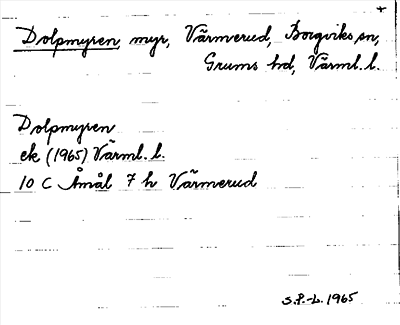 +
Dolpmyren, myr, Värmerud, Borgviks sn,
Grums hd, Värml. l.
Dolpmyren
ek (1965) Värml. l.
10 C Åmål 7 h Värmerud
S.P.-L. 1965